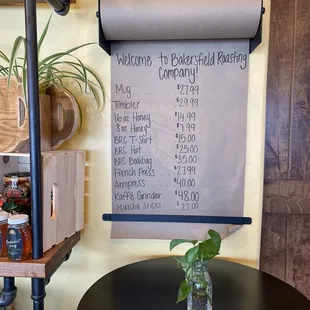 Welcome to Bakersfield Roasting
Company!
Mug $27.99
Tumbler $29.99
16 oz Honey $14.99
8 oz Honey $7.99
BRC T-Shirt $15.00
BRC Hat $25.00
BRC Bookbag $35.00
French Press $27.99
Aeropress $40.00
Kaffe Grinder $48.00